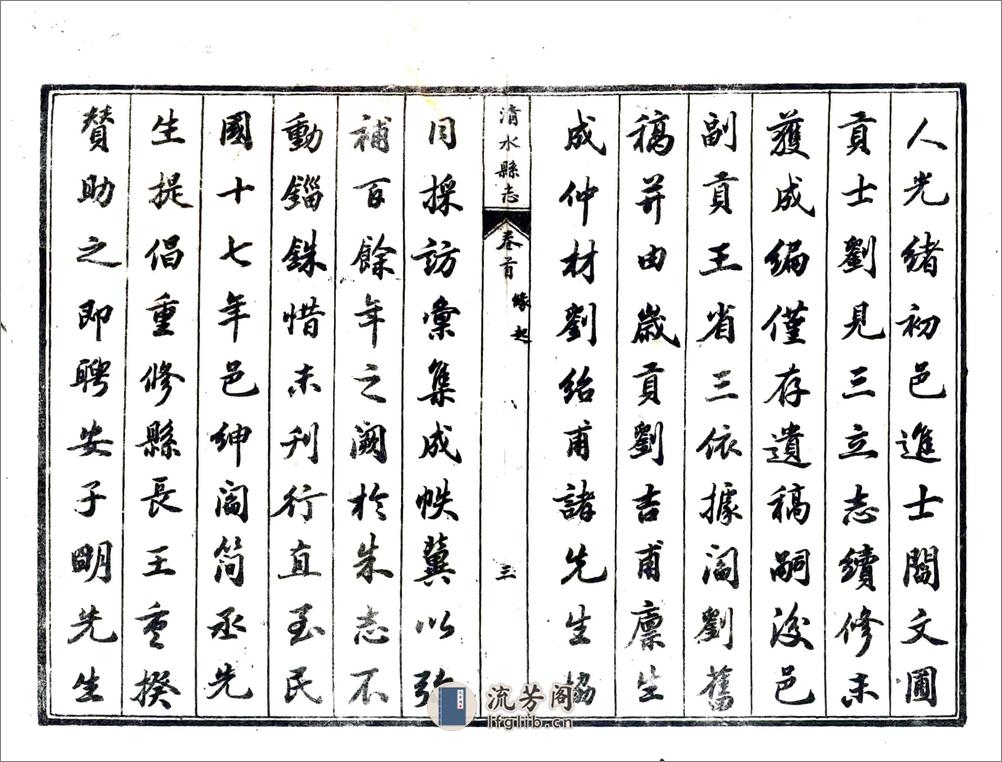 人光緒初邑進士閻文圃
貢士劉見三立志續修未
獲成編僅存遺稿嗣後邑
副貢王省三依據閻劉舊
稿并由歲貢劉吉甫廪生
成仲材劉紹甫諸先生協
清水縣志 卷首 緣起 三
同採訪彙集成帙冀以弥
補百餘年之闕於朱志不
動錙銖惜未刊行直至民
國十七年邑紳閻简丞先
生提倡重修縣長王重揆
贊助之即聘安子明先生
流芳阁
lfglib.cn